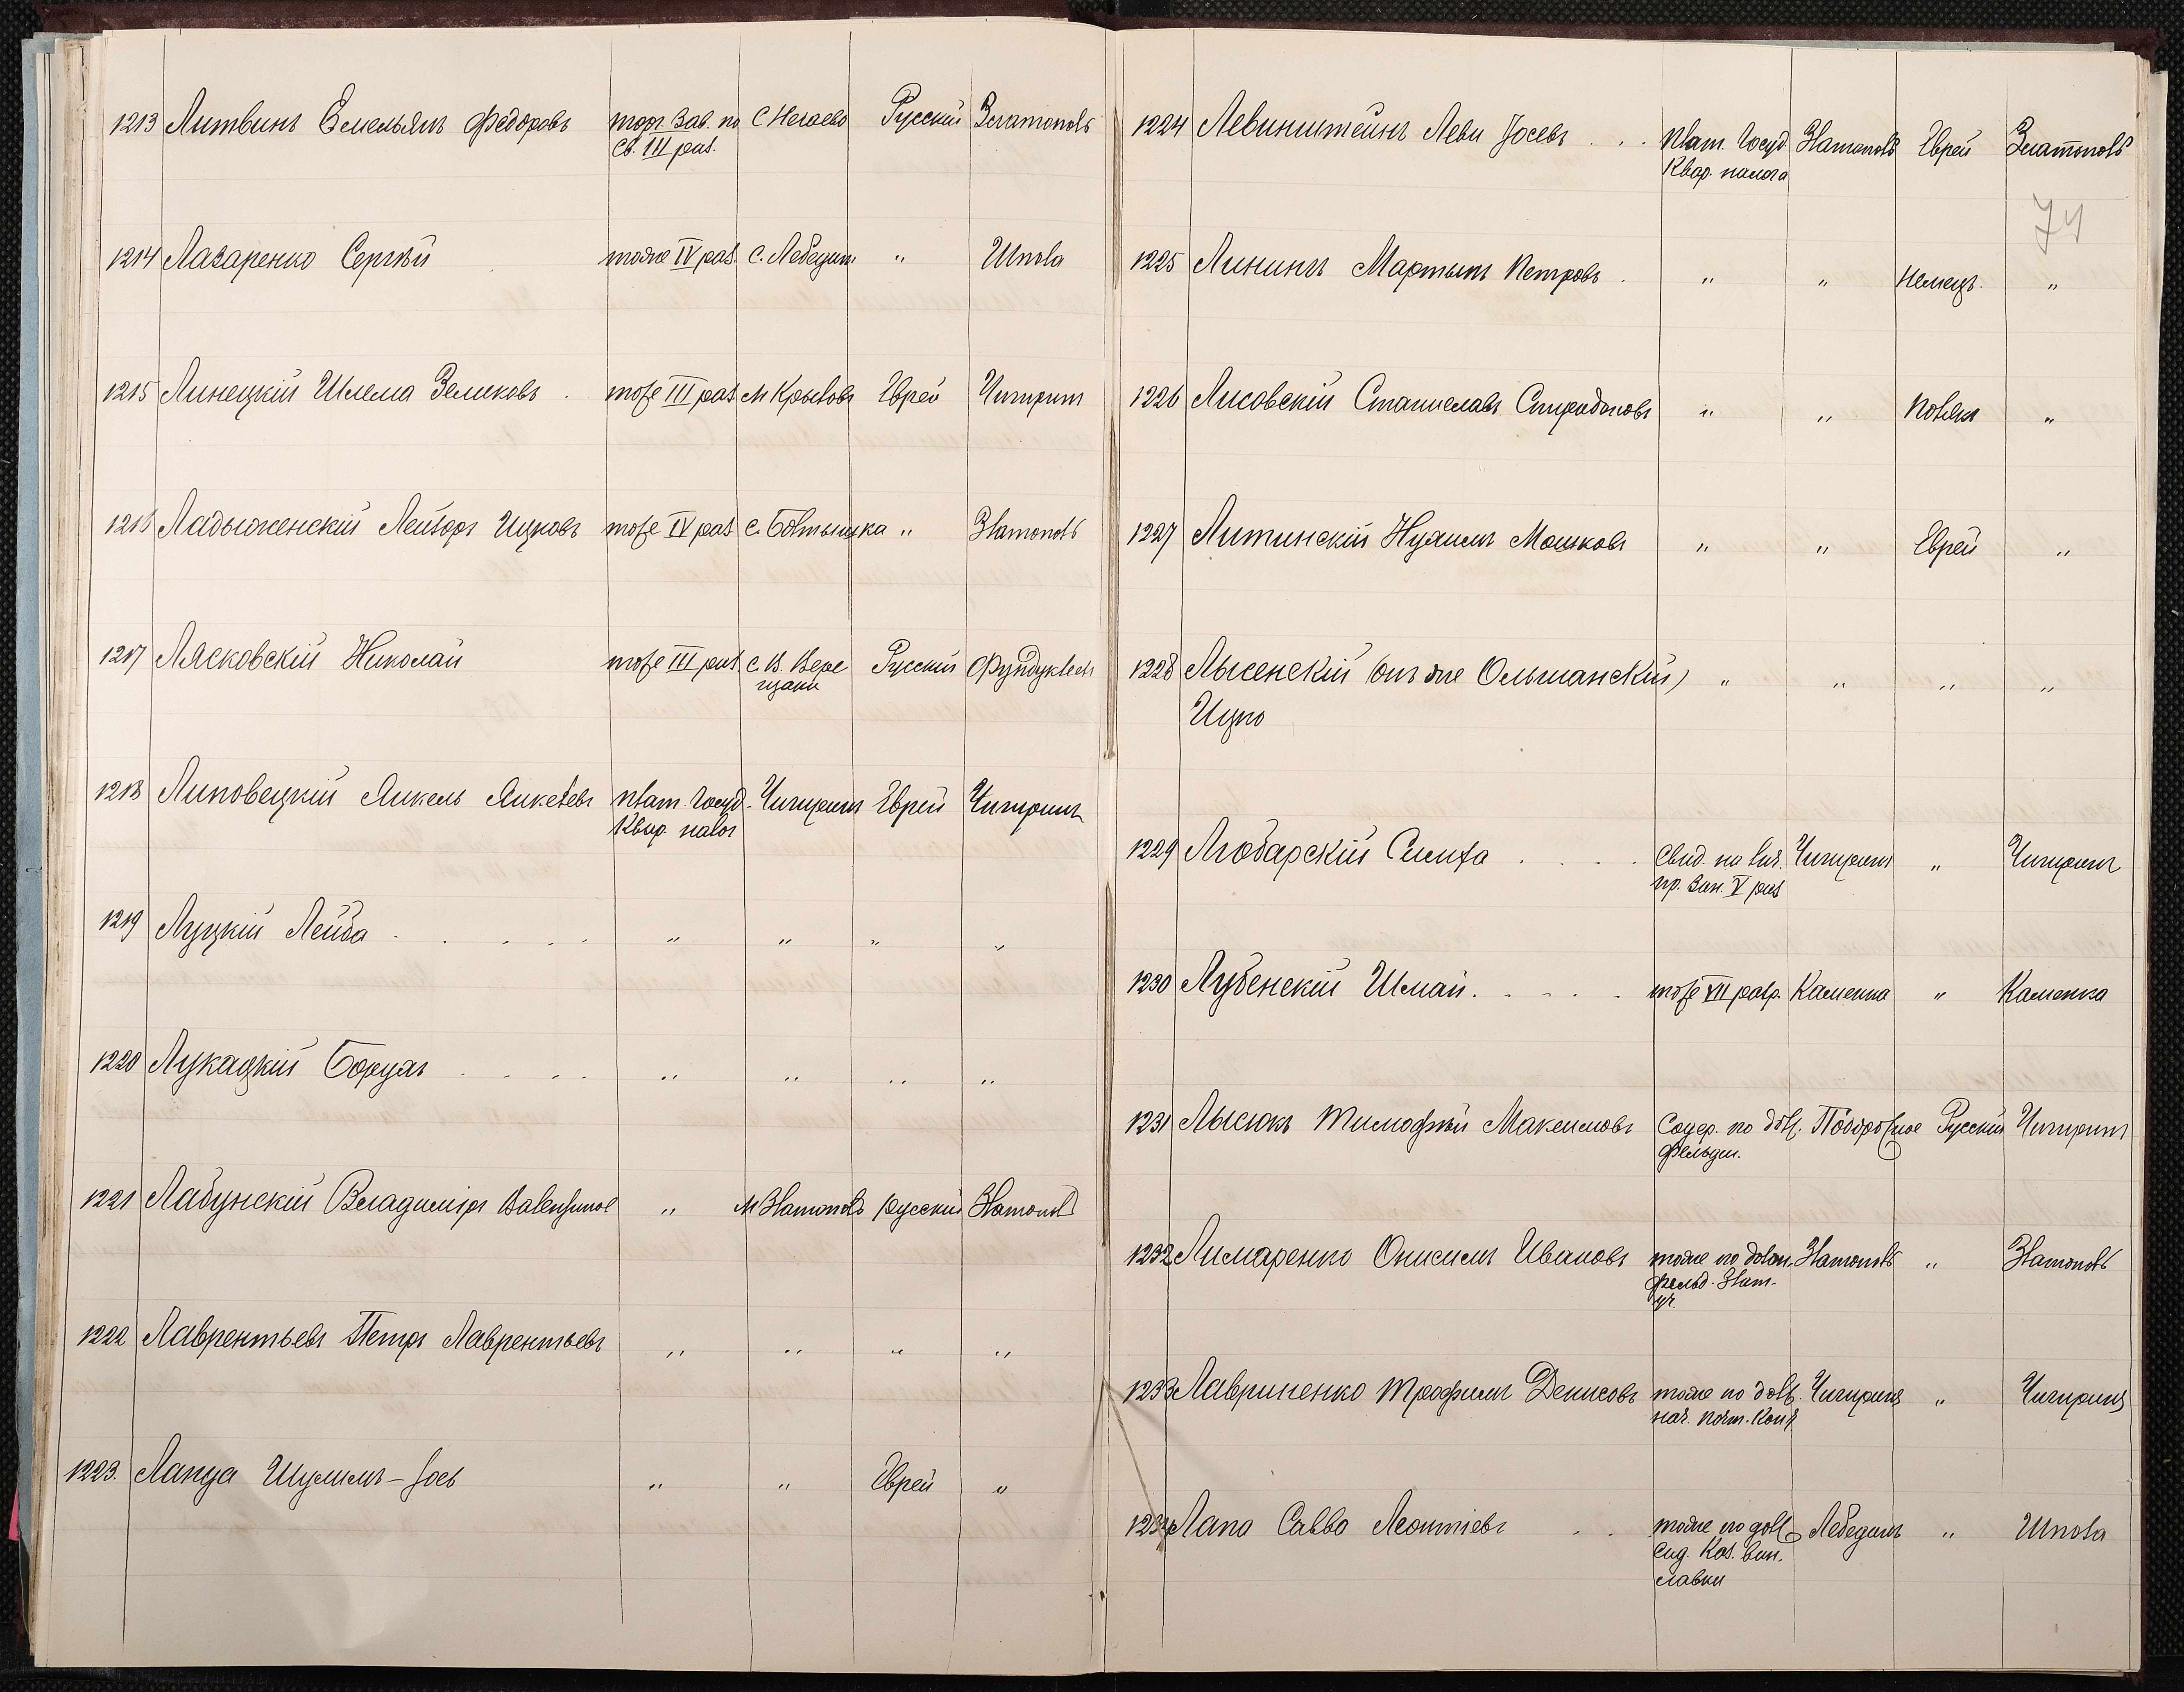 1213 Литвинъ Емельянъ Федоровъ торг. зав. по С Нечаево Русскій Златополь
св. III раз.
1214 Лазаренко Сергѣй тоже IV раз. С. Лебедин " Шпола
1215 Линецкій Шлема Зеликовъ тоже III раз м Крыловъ Еврей Чигирин
1216 Ладыженскій Лейзоръ Ицковъ тоже IV раз с. Болтышка " Златополь
1217 Лясковскій Николай тоже III раз. с. В. Вере Русскій Фундуклеев
щаки
1218 Липовецкій Янкель Янкелевъ плат. Госуд. Чигирин Еврей Чигирин
Квар. налог
1219 Луцкій Лейба " " " "
1220 Лукацкій Борухъ " " " "
1221 Лабунскій Владиміръ " м Златополь русскій Златопол
1222 Лаврентьевъ Петръ Лаврентьевъ " " " "
1223. Ланда Шулимъ-Іось " " Еврей "
1224 Левинштейнъ Леви Іосевъ . . . Плат. Госуд. Златополь Еврей Златополь
Квар. налога
74
1225 Лининъ Мартынъ Петровъ . " " Немецъ. "
1226 Лисовскій Станиславъ Спиридоновъ " " Полякъ "
1227 Литинскій Нухимъ Мошковъ " " Еврей "
1228 Лысенскій (онъ же Ольшанскій) " " " "
Ицко
1229 Любарскій Симха . . . . Свид. на лич. Чигирин " Чигирин
пр. зан. V раз
1230 Лубенскій Шмай . . . . тоже VII разр. Каменка " Каменка
1231 Лысюкъ Тимофѣй Максимовъ Содер. по долж. Подорожное Русскій Чигирин
фельдш.
1232 Лимаренко Онисимъ Ивановъ тоже по долж. Златополь " Златополь
фельд. Злат.
уч.
1233 Лавриненко Трофимъ Денисовъ тоже по долж. Чигирин " Чигирин
нач. почт. Кон
1234 Лапо Савво Леонтіевъ . . тоже по долж Лебединъ " Шпола
сид. Каз. вин.
лавки